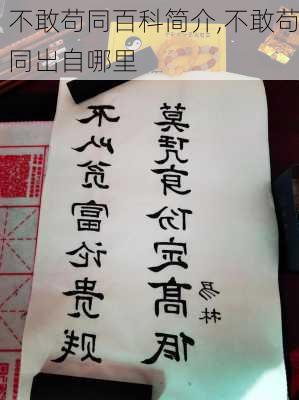 不敢苟同百科简介,不敢苟
同出自哪里
不以贫富论贵贱
莫凭身份定高低
易林